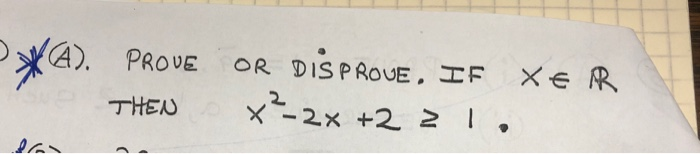 *(A). PROVE OR DISPROVE. IF X ∈ ℝ
THEN x²-2x +2 ≥ 1.